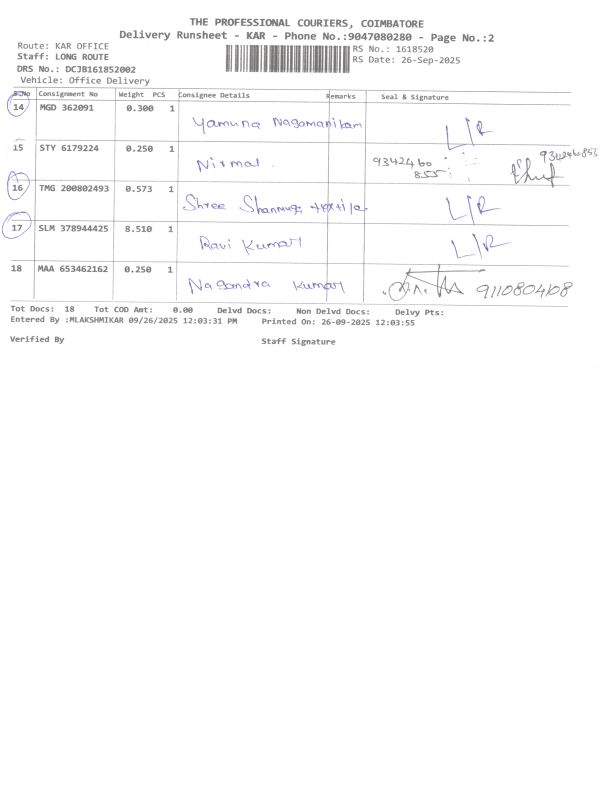 THE PROFESSIONAL COURIERS, COIMBATORE
Delivery Runsheet - KAR - Phone No.:9047080280 - Page No.:2
Route: KAR OFFICE RS No.: 1618520
Staff: LONG ROUTE RS Date: 26-Sep-2025
DRS No.: DCJB161852002
Vehicle: Office Delivery
S.No Consignment No Weight PCS Consignee Details Remarks Seal & Signature
14 MGD 362091 0.300 1 Yamuna Nagamanikam L/R
15 STY 6179224 0.250 1 Nirmal. 9342460 855
16 TMG 200802493 0.573 1 Shree Shanmuga L/R
17 SLM 378944425 8.510 1 Ravi Kumar L/R
18 MAA 653462162 0.250 1 Nagandra Kumar 9110804108
Tot Docs: 18 Tot COD Amt: 0.00 Delvd Docs: Non Delvd Docs: Delvy Pts:
Entered By :MLAKSHMIKAR 09/26/2025 12:03:31 PM Printed On: 26-09-2025 12:03:55
Verified By Staff Signature